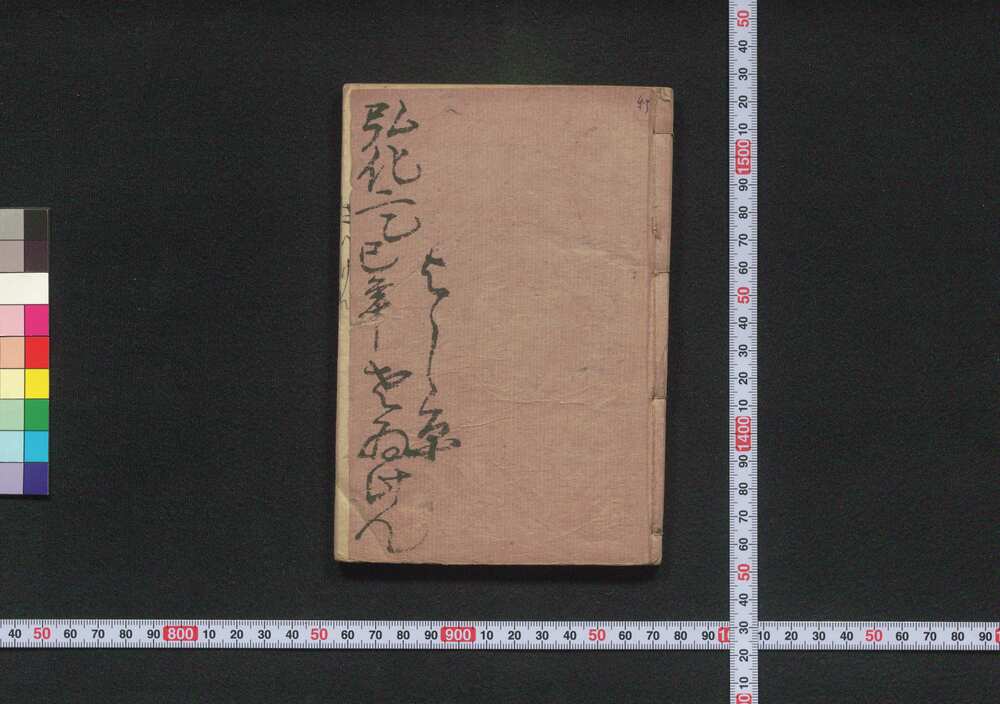 45
よし原
弘化二乙巳年
さゐけん
40 50 60 70 80 90 800 10 20 30 40 50 60 70 80 90 900 10 20 30 40 50 60 70 80 90 10 20 30 40 50 60 70 80 90
50 40 30 20 10 1500 90 80 70 60 50 40 30 20 10 1400 90 80 70 60 50 40 30 20 10